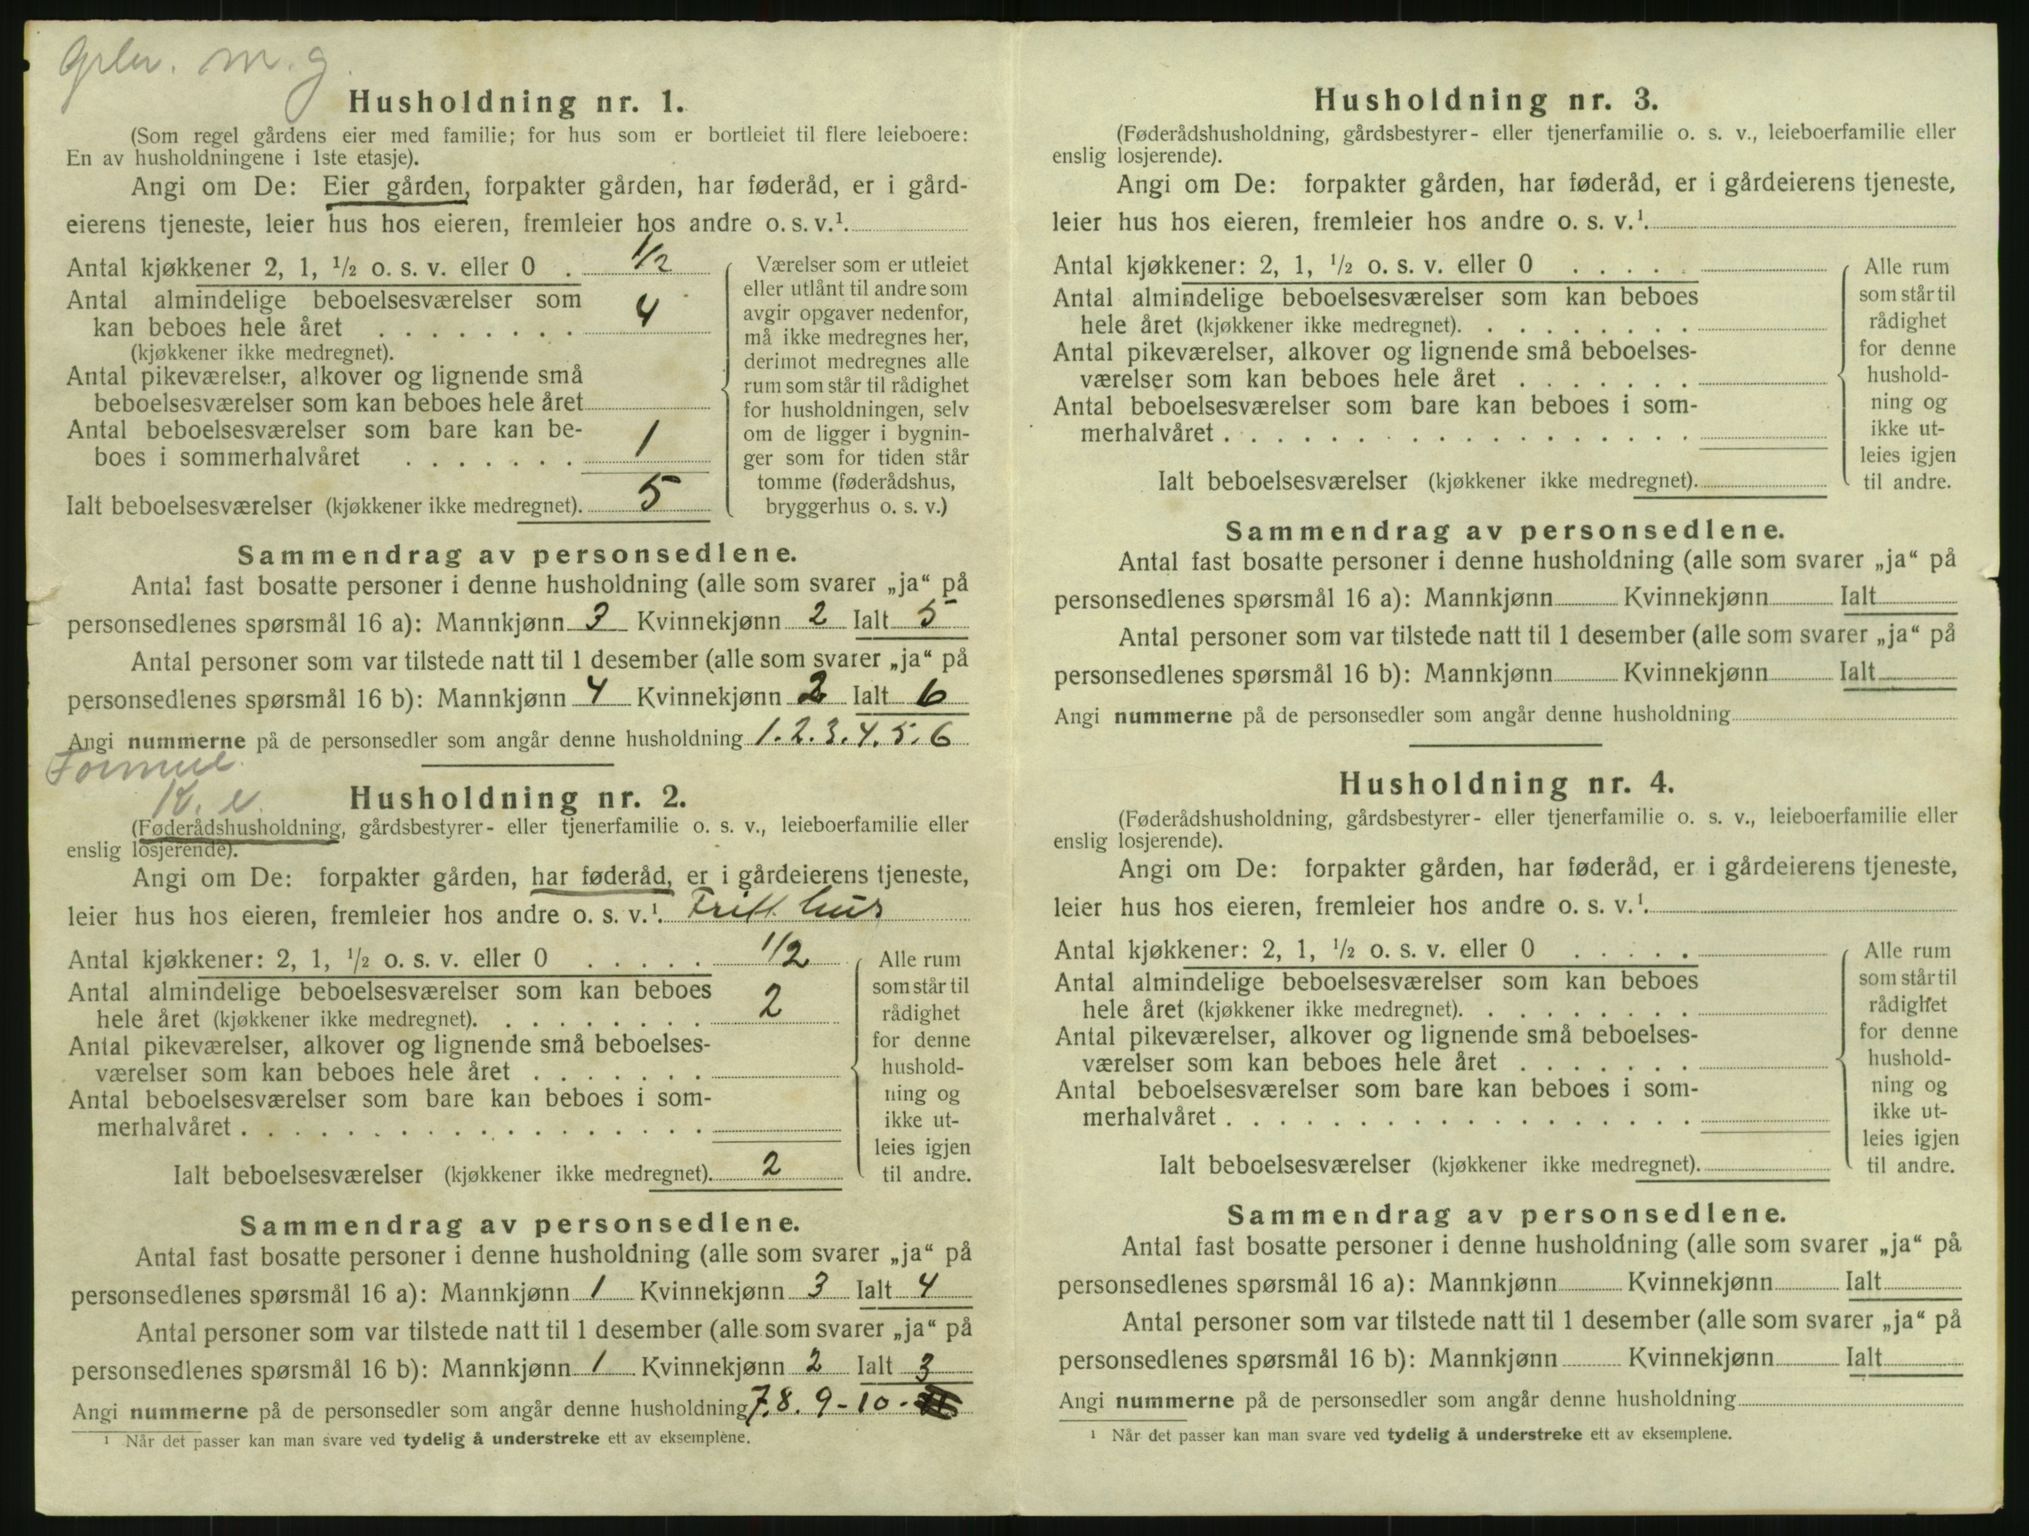 Grbr. m. g.
Husholdning nr. 1.
(Som regel gårdens eier med familie; for hus som er bortleiet til flere leieboere:
En av husholdningene i 1ste etasje).
Angi om De: Eier gården, forpakter gården, har føderåd, er i gård-
eierens tjeneste, leier hus hos eieren, fremleier hos andre o. s. v.¹.
Antal kjøkkener 2, 1, ½ o. s. v. eller 0 . 1/2
Antal almindelige beboelsesværelser som
kan beboes hele året . . . . . . . . 4
(kjøkkener ikke medregnet).
Antal pikeværelser, alkover og lignende små
beboelsesværelser som kan beboes hele året
Antal beboelsesværelser som bare kan be-
boes i sommerhalvåret . . . . . . . 1
Ialt beboelsesværelser (kjøkkener ikke medregnet). 5
Værelser som er utleiet
eller utlånt til andre som
avgir opgaver nedenfor,
må ikke medregnes her,
derimot medregnes alle
rum som står til rådighet
for husholdningen, selv
om de ligger i bygnin-
ger som for tiden står
tomme (føderådshus,
bryggerhus o. s. v.)
Sammendrag av personsedlene.
Antal fast bosatte personer i denne husholdning (alle som svarer „ja“ på
personsedlenes spørsmål 16 a): Mannkjønn 3 Kvinnekjønn 2 Ialt 5
Antal personer som var tilstede natt til 1 desember (alle som svarer „ja“ på
personsedlenes spørsmål 16 b): Mannkjønn 4 Kvinnekjønn 2 Ialt 6
Angi nummerne på de personsedler som angår denne husholdning 1. 2. 3. 4. 5. 6
K. e.
Husholdning nr. 2.
(Føderådshusholdning, gårdsbestyrer- eller tjenerfamilie o. s. v., leieboerfamilie eller
enslig losjerende).
Angi om De: forpakter gården, har føderåd, er i gårdeierens tjeneste,
leier hus hos eieren, fremleier hos andre o. s. v.¹. Fritt hus
Antal kjøkkener: 2, 1, ½ o. s. v. eller 0 . . . . . 1/2
Antal almindelige beboelsesværelser som kan beboes
hele året (kjøkkener ikke medregnet). . . . . . . . . 2
Antal pikeværelser, alkover og lignende små beboelses-
værelser som kan beboes hele året . . . . . . .
Antal beboelsesværelser som bare kan beboes i som-
merhalvåret . . . . . . . . . . . . . . . . . .
Ialt beboelsesværelser (kjøkkener ikke medregnet). 2
Alle rum
som står til
rådighet
for denne
hushold-
ning og
ikke ut-
leies igjen
til andre.
Sammendrag av personsedlene.
Antal fast bosatte personer i denne husholdning (alle som svarer „ja“ på
personsedlenes spørsmål 16 a): Mannkjønn 1 Kvinnekjønn 3 Ialt 4
Antal personer som var tilstede natt til 1 desember (alle som svarer „ja“ på
personsedlenes spørsmål 16 b): Mannkjønn 1 Kvinnekjønn 2 Ialt 3
Angi nummerne på de personsedler som angår denne husholdning 7. 8. 9 - 10 -
¹ Når det passer kan man svare ved tydelig å understreke ett av eksemplene.
Husholdning nr. 3.
(Føderådshusholdning, gårdsbestyrer- eller tjenerfamilie o. s. v., leieboerfamilie eller
enslig losjerende).
Angi om De: forpakter gården, har føderåd, er i gårdeierens tjeneste,
leier hus hos eieren, fremleier hos andre o. s. v.¹.
Antal kjøkkener: 2, 1, ½ o. s. v. eller 0 . . . . .
Antal almindelige beboelsesværelser som kan beboes
hele året (kjøkkener ikke medregnet). . . . . . . . .
Antal pikeværelser, alkover og lignende små beboelses-
værelser som kan beboes hele året . . . . . . .
Antal beboelsesværelser som bare kan beboes i som-
merhalvåret . . . . . . . . . . . . . . . . . .
Ialt beboelsesværelser (kjøkkener ikke medregnet).
Alle rum
som står til
rådighet
for denne
hushold-
ning og
ikke ut-
leies igjen
til andre.
Sammendrag av personsedlene.
Antal fast bosatte personer i denne husholdning (alle som svarer „ja“ på
personsedlenes spørsmål 16 a): Mannkjønn Kvinnekjønn Ialt
Antal personer som var tilstede natt til 1 desember (alle som svarer „ja“ på
personsedlenes spørsmål 16 b): Mannkjønn Kvinnekjønn Ialt
Angi nummerne på de personsedler som angår denne husholdning
Husholdning nr. 4.
(Føderådshusholdning, gårdsbestyrer- eller tjenerfamilie o. s. v., leieboerfamilie eller
enslig losjerende).
Angi om De: forpakter gården, har føderåd, er i gårdeierens tjeneste,
leier hus hos eieren, fremleier hos andre o. s. v.¹.
Antal kjøkkener: 2, 1, ½ o. s. v. eller 0 . . . . .
Antal almindelige beboelsesværelser som kan beboes
hele året (kjøkkener ikke medregnet). . . . . . . . .
Antal pikeværelser, alkover og lignende små beboelses-
værelser som kan beboes hele året . . . . . . .
Antal beboelsesværelser som bare kan beboes i som-
merhalvåret . . . . . . . . . . . . . . . . . .
Ialt beboelsesværelser (kjøkkener ikke medregnet).
Alle rum
som står til
rådighet
for denne
hushold-
ning og
ikke ut-
leies igjen
til andre.
Sammendrag av personsedlene.
Antal fast bosatte personer i denne husholdning (alle som svarer „ja“ på
personsedlenes spørsmål 16 a): Mannkjønn Kvinnekjønn Ialt
Antal personer som var tilstede natt til 1 desember (alle som svarer „ja“ på
personsedlenes spørsmål 16 b): Mannkjønn Kvinnekjønn Ialt
Angi nummerne på de personsedler som angår denne husholdning
¹ Når det passer kan man svare ved tydelig å understreke ett av eksemplene.